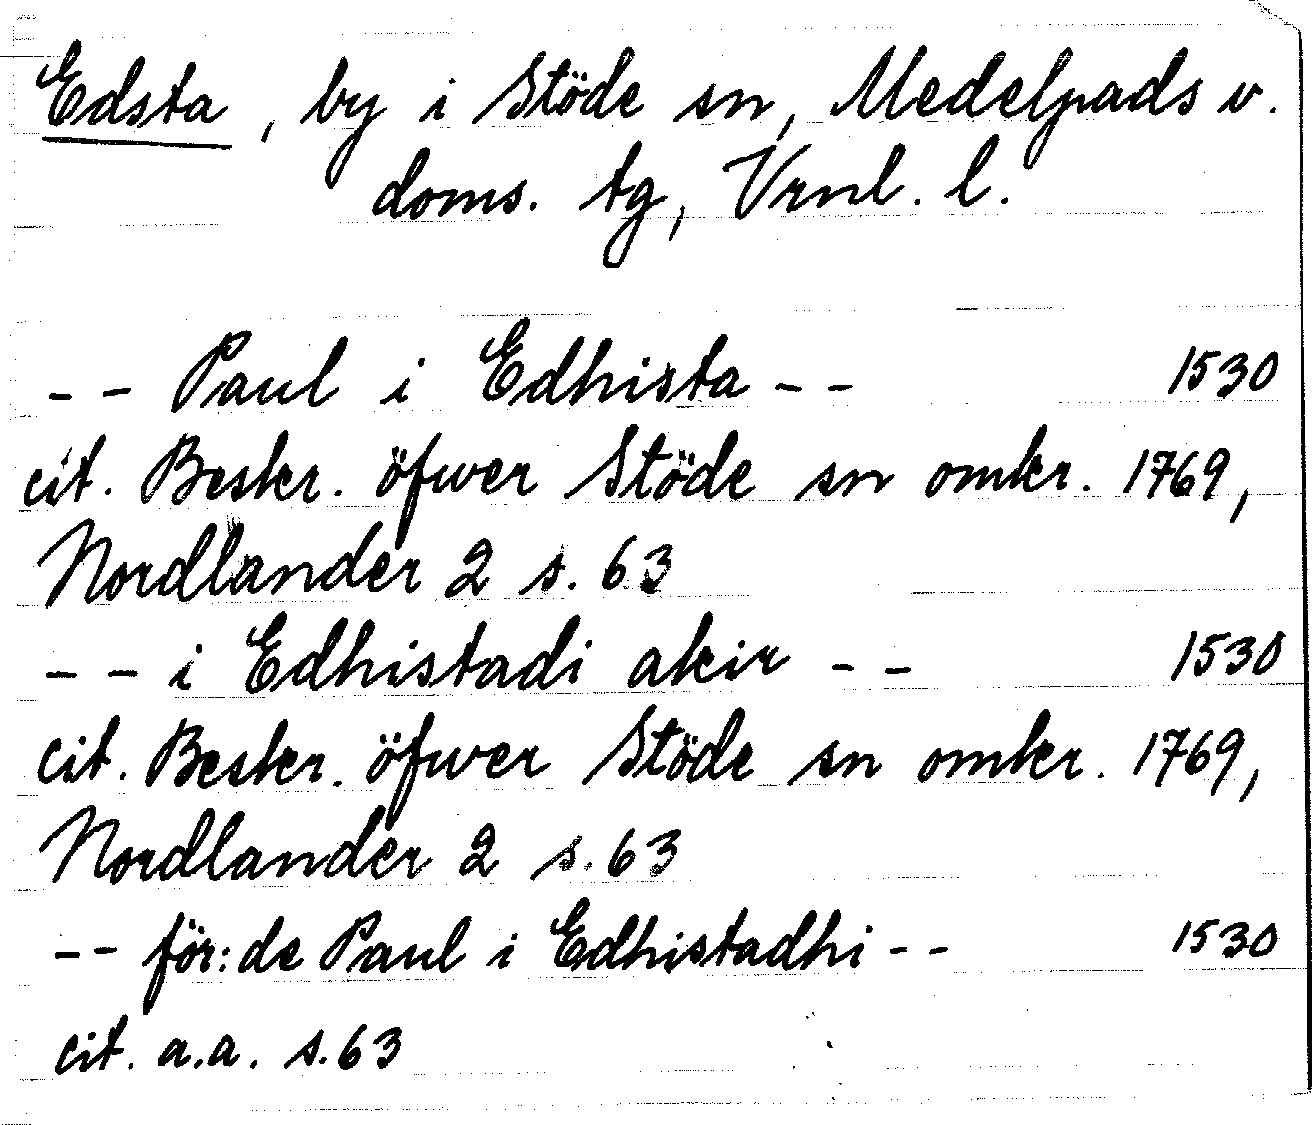 Edsta, by i Stöde sn, Medelpads v.
doms. tg, Vrnl. l.
-- Paul i Edhista -- 1530
cit. Beskr. öfwer Stöde sn omkr. 1769,
Nordlander 2 s. 63
-- i Edhistadi akir -- 1530
cit. Beskr. öfwer Stöde sn omkr. 1769,
Nordlander 2 s. 63
-- för:de Paul i Edhistadhi -- 1530
cit. a.a. s. 63